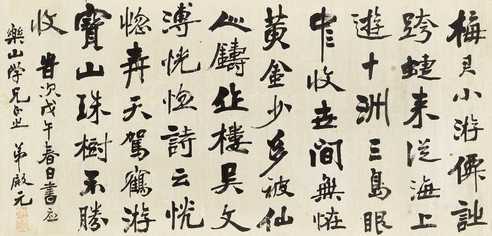 梅小游僊詩
跨蜨來從海上
遊十洲三島眼
中收世間無恠
黃金少多被仙
人鑄作樓吳文
溥恍惚詩云恍
惚天駕鶴游
寶山珠樹不勝
收 旹次戊午春日書應
樂山學兄正 弟啟元